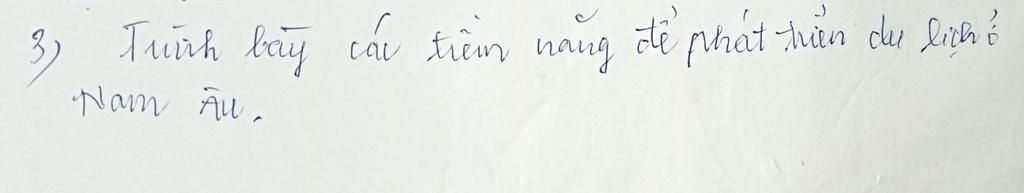 3) Trình bày các tiềm năng để phát triển du lịch ở
Nam Âu.